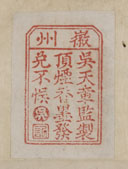 徽州
吳天章監製
頂煙香墨發
兌不悞